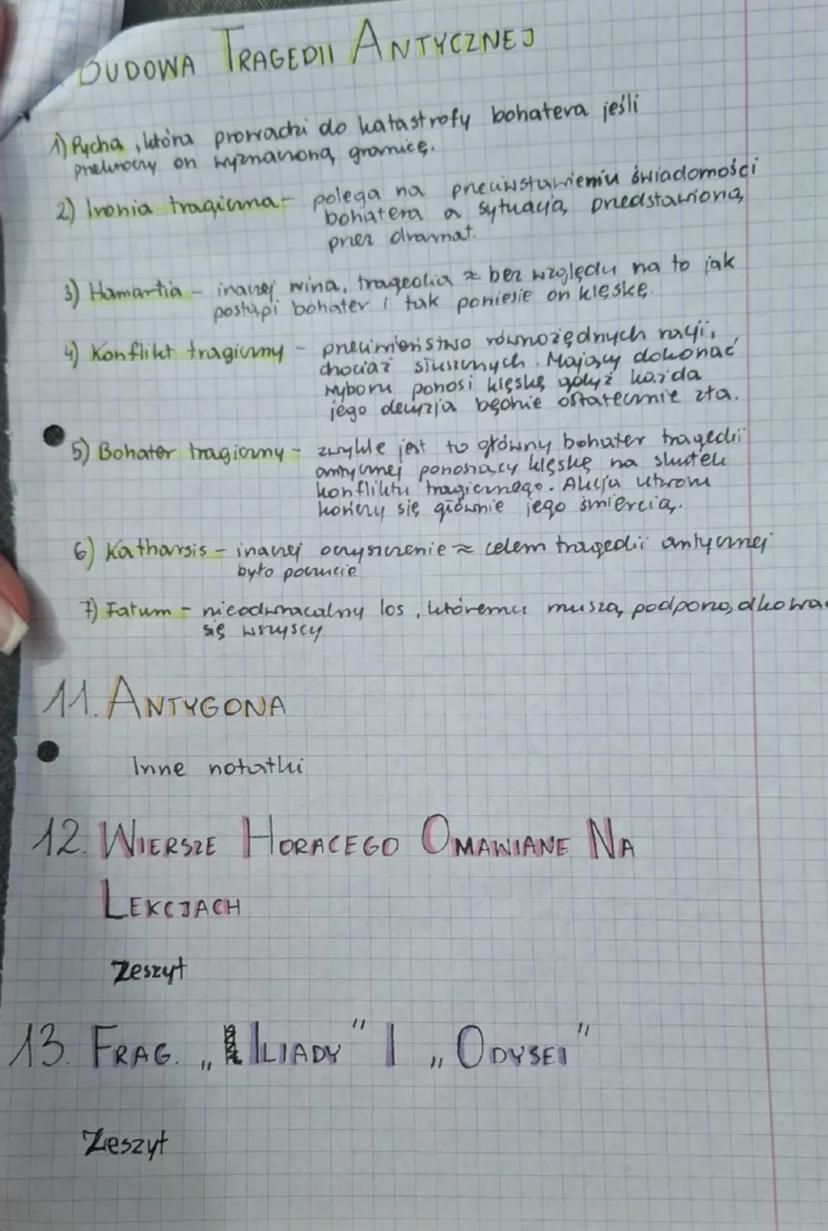 BUDOWA TRAGEDII ANTYCZNEJ
1) Pycha, która prowadzi do katastrofy bohatera jeśli
przekroczy on wyznaczoną granicę.
2) Ironia tragiczna - polega na przeciwstawieniu świadomości
bohatera a sytuacją przedstawioną
przez dramat.
3) Hamartia - inaczej wina, tragedia ≈ bez względu na to jak
postąpi bohater i tak poniesie on klęskę.
4) Konflikt tragiczny - przeciwieństwo równorzędnych racji,
chociaż słusznych. Mający dokonać
wyboru ponosi klęskę gdyż każda
jego decyzja będzie ostatecznie zła.
5) Bohater tragiczny - zwykle jest to główny bohater tragedii
antycznej ponoszący klęskę na skutek
konfliktu tragicznego. Akcja utworu
kończy się głównie jego śmiercią.
6) Katharsis - inaczej oczyszczenie ≈ celem tragedii antycznej
było poczucie
7) Fatum - nieodwracalny los, któremu muszą podporządkować
się wszyscy
11. ANTYGONA
Inne notatki
12. WIERSZE HORACEGO OMAWIANE NA
LEKCJACH
Zeszyt
13. FRAG. „ILIADY" I „ODYSEI"
Zeszyt